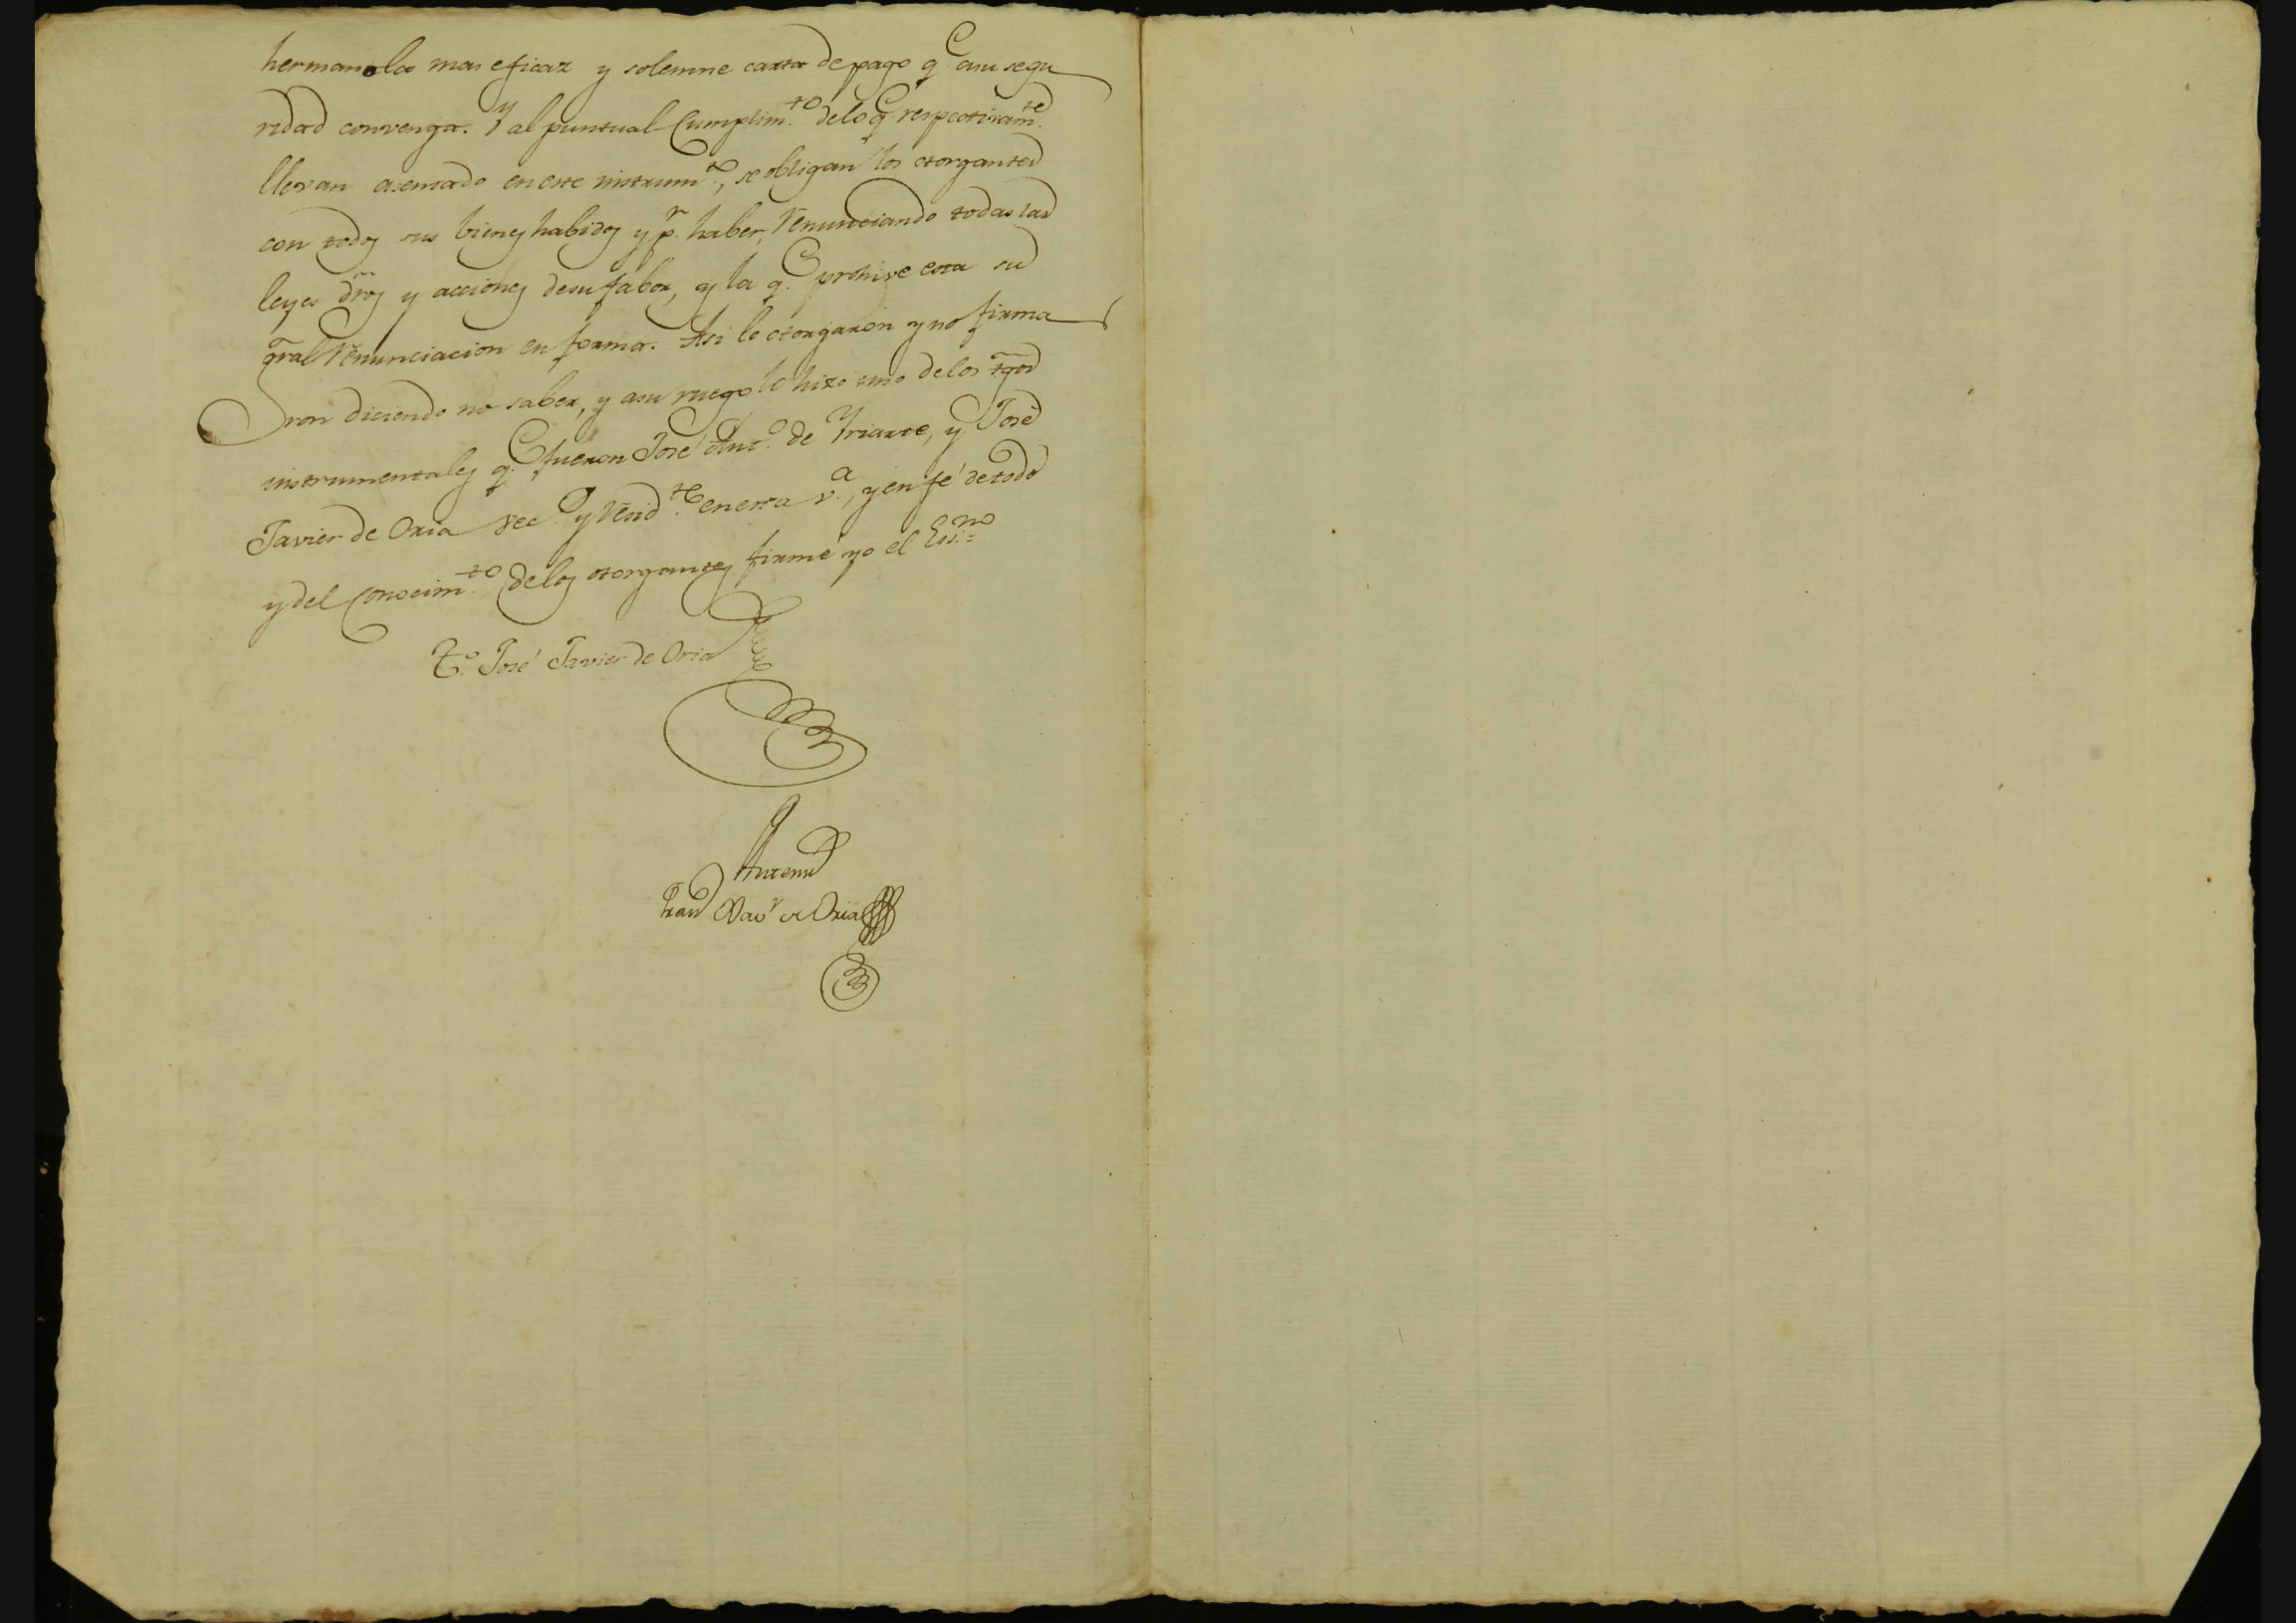 hermano la mas eficaz y solemne carta de pago q.e a su segu
ridad convenga. Y al puntual Cumplim.to de lo q.e respectivam.te
llevan asentado en este instrum.to, se obligan los otorgantes
con todos sus bienes habidos y p.r haber, renunciando todas las
leyes dros y acciones de su fabor, y la q.e prohive esta su
gral renunciacion en forma. Asi lo otorgaron y no firma
ron diciendo no saber, y a su ruego lo hizo uno de los tgos
instrumentales q.e fueron José Ant.o de Yriarte, y José
Javier de Oria vec.s y resid.te en esta v.a, y en fé de todo
y del Conocim.to de los otorgantes firmé yo el Ess.no =
T.o José Javier de Oria
Ante mi
Fran Xav.r de Oria